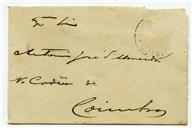 Exmo Snr
Antonio José d'Almeida
Na Cadeia de
Coimbra